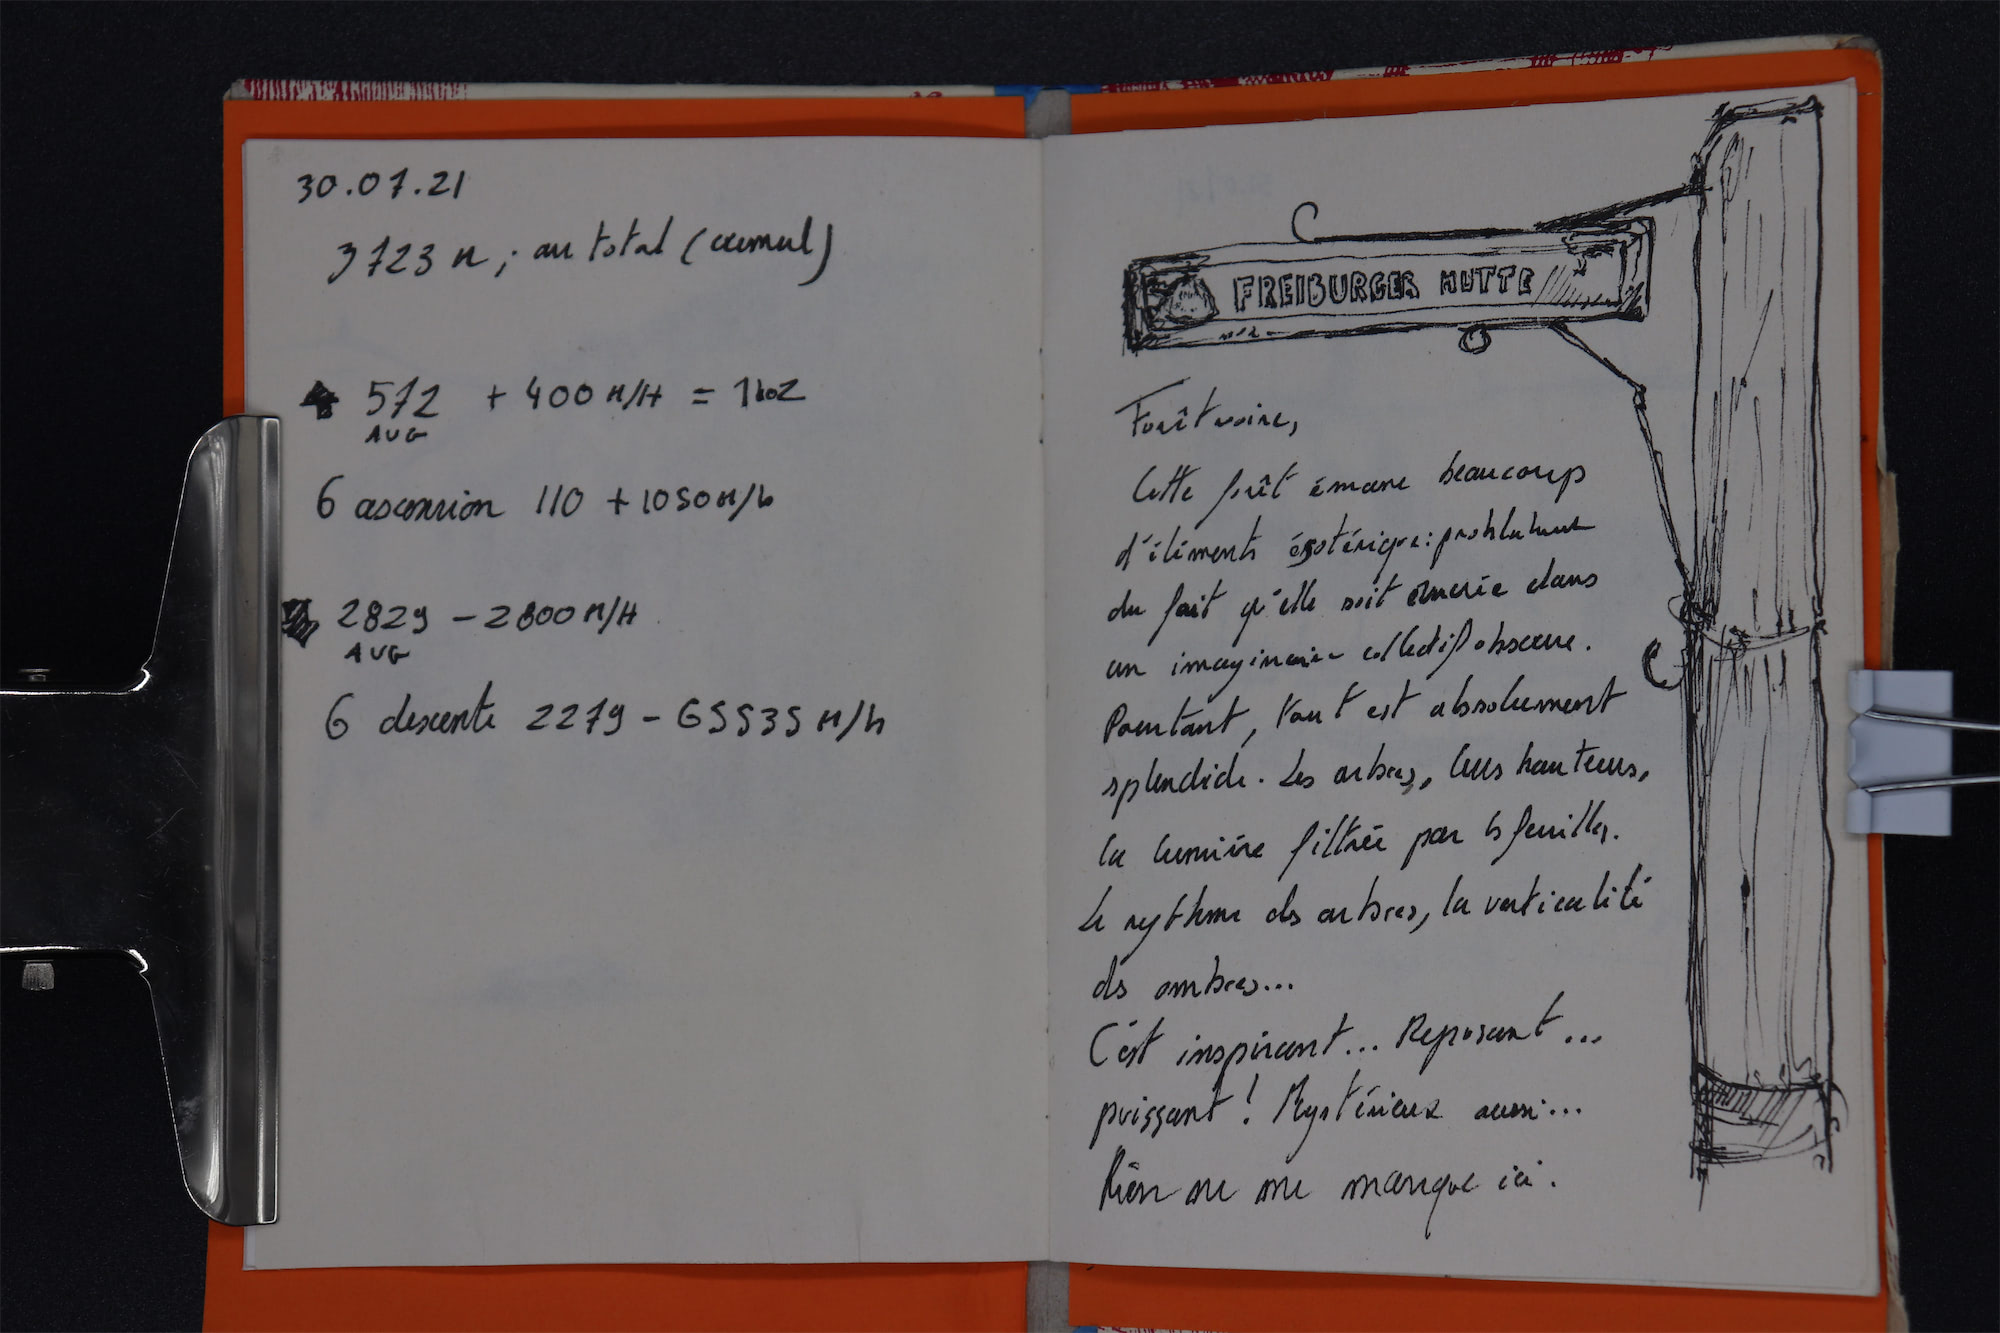 30.07.21
3723 M ; au total (cumul)
572 + 400 M/H =
AVG
6 ascension 110 + 1050 M/h
2829 - 2800 M/H
AVG
6 descente 2279 - 65535 M/h
FREIBURGER HUTTE
Forêt noire,
Cette forêt émane beaucoup
d'éléments ésotérique: probablement
du fait qu'elle soit ancrée dans
un imaginaire collectif obscure.
Pourtant, tout est absolument
splendide. Les arbres, leurs hauteurs,
la lumière filtrée par les feuilles.
Le rythme des arbres, la verticalité
des ombres...
C'est inspirant... Reposant...
puissant ! Mystérieux aussi...
Rien ne me manque ici.